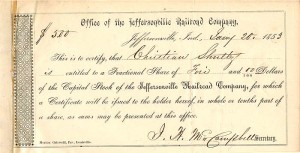 Office of the Jeffersonville Railroad Company,
$ 500
Jeffersonville, Ind., Jany 20th 1853
This is to certify, that Christian
is entitled to a Fractional Share of Five and 00/100 Dollars
of the Capital Stock of the Jeffersonville Railroad Company, for which
a Certificate will be issued to the holder hereof, in whole or tenths part of
a share, as same may be presented at this office.
Secretary.